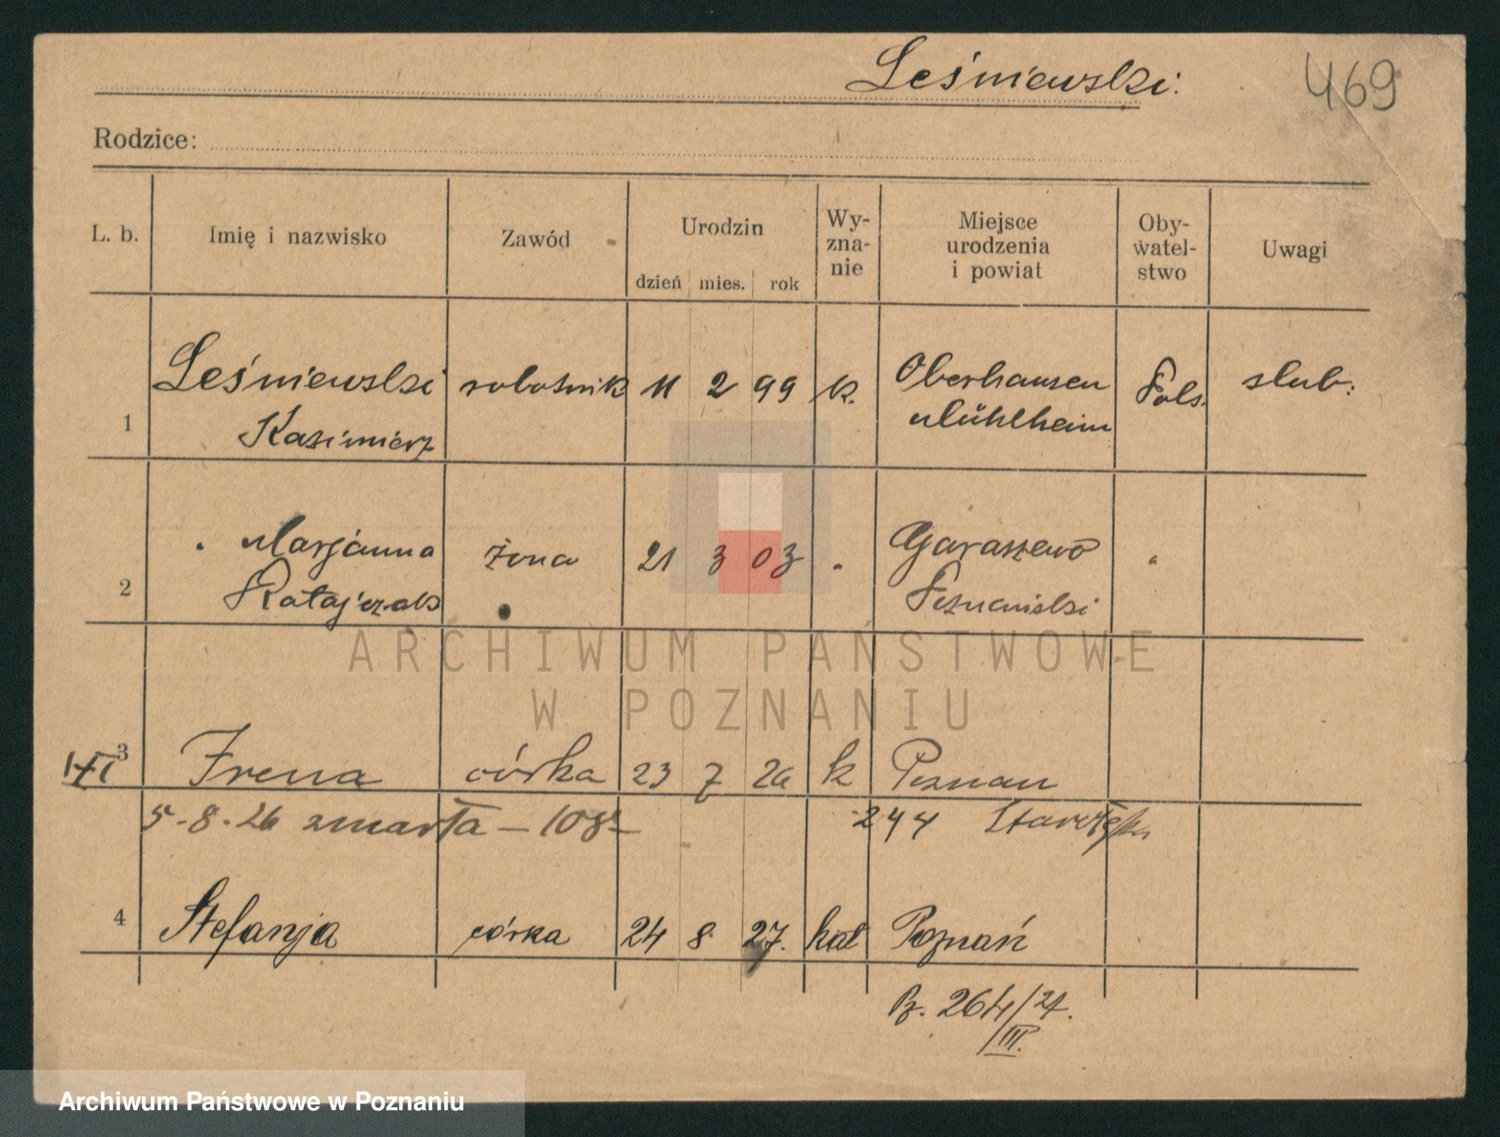 Leśniewski.
469
Rodzice:
L. b. Imię i nazwisko Zawód Urodzin dzień mies. rok Wy-zna-nie Miejsce urodzenia i powiat Oby-watel-stwo Uwagi
1 Leśniewski robotnik 11 2 99 k. Oberhausen Pols. slub.
Kazimierz Mühlheim
2 Marjanna żona 21 3 03 Garaszewo
Ratajczak Poznański
ARCHIWUM PAŃSTWOWE
W POZNANIU
3 Irena córka 23 7 26 k Poznań
5-8-26 zmarła - 108 244
4 Stefanja córka 24 8 27. kat Poznań
264/27.
III.
Archiwum Państwowe w Poznaniu